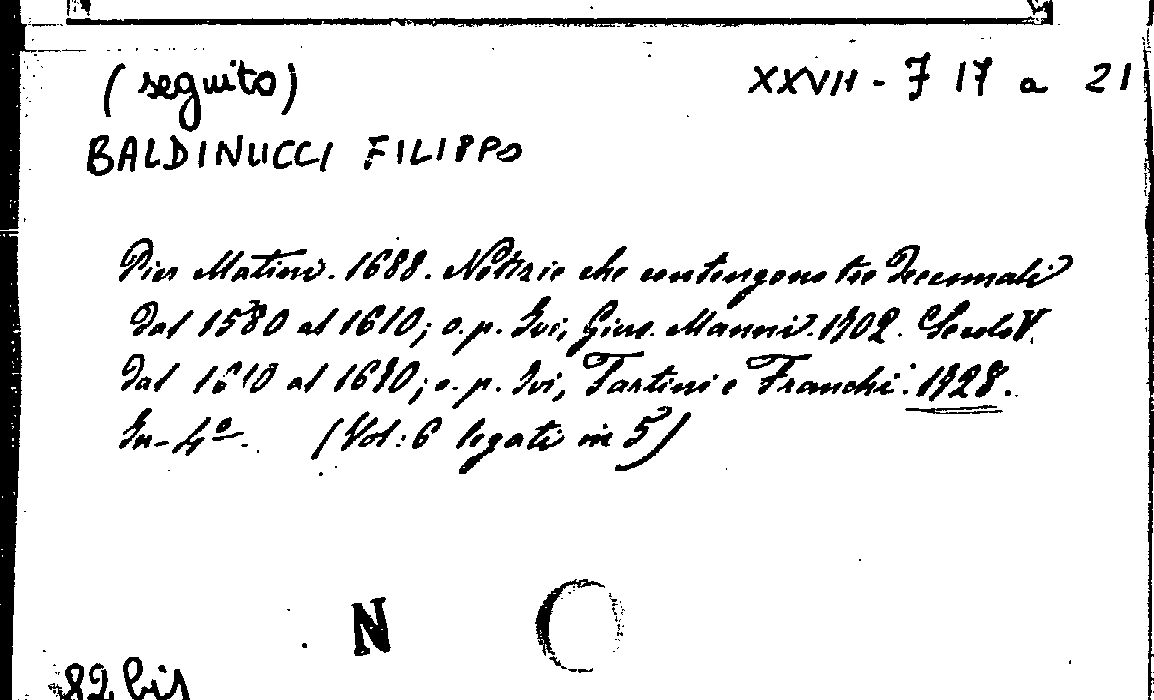 (seguito) XXVII - F 17 a 21
BALDINUCCI FILIPPO
Pier Matini. 1688. Notizie che contengono tre Decennali
dal 1580 al 1610; o. p. Ivi, Gius. Manni. 1702. Secolo V.
dal 1610 al 1670; o. p. Ivi, Tartini e Franchi. 1728.
In-4º. (Vol: 6 legati in 5)
N
82 bis